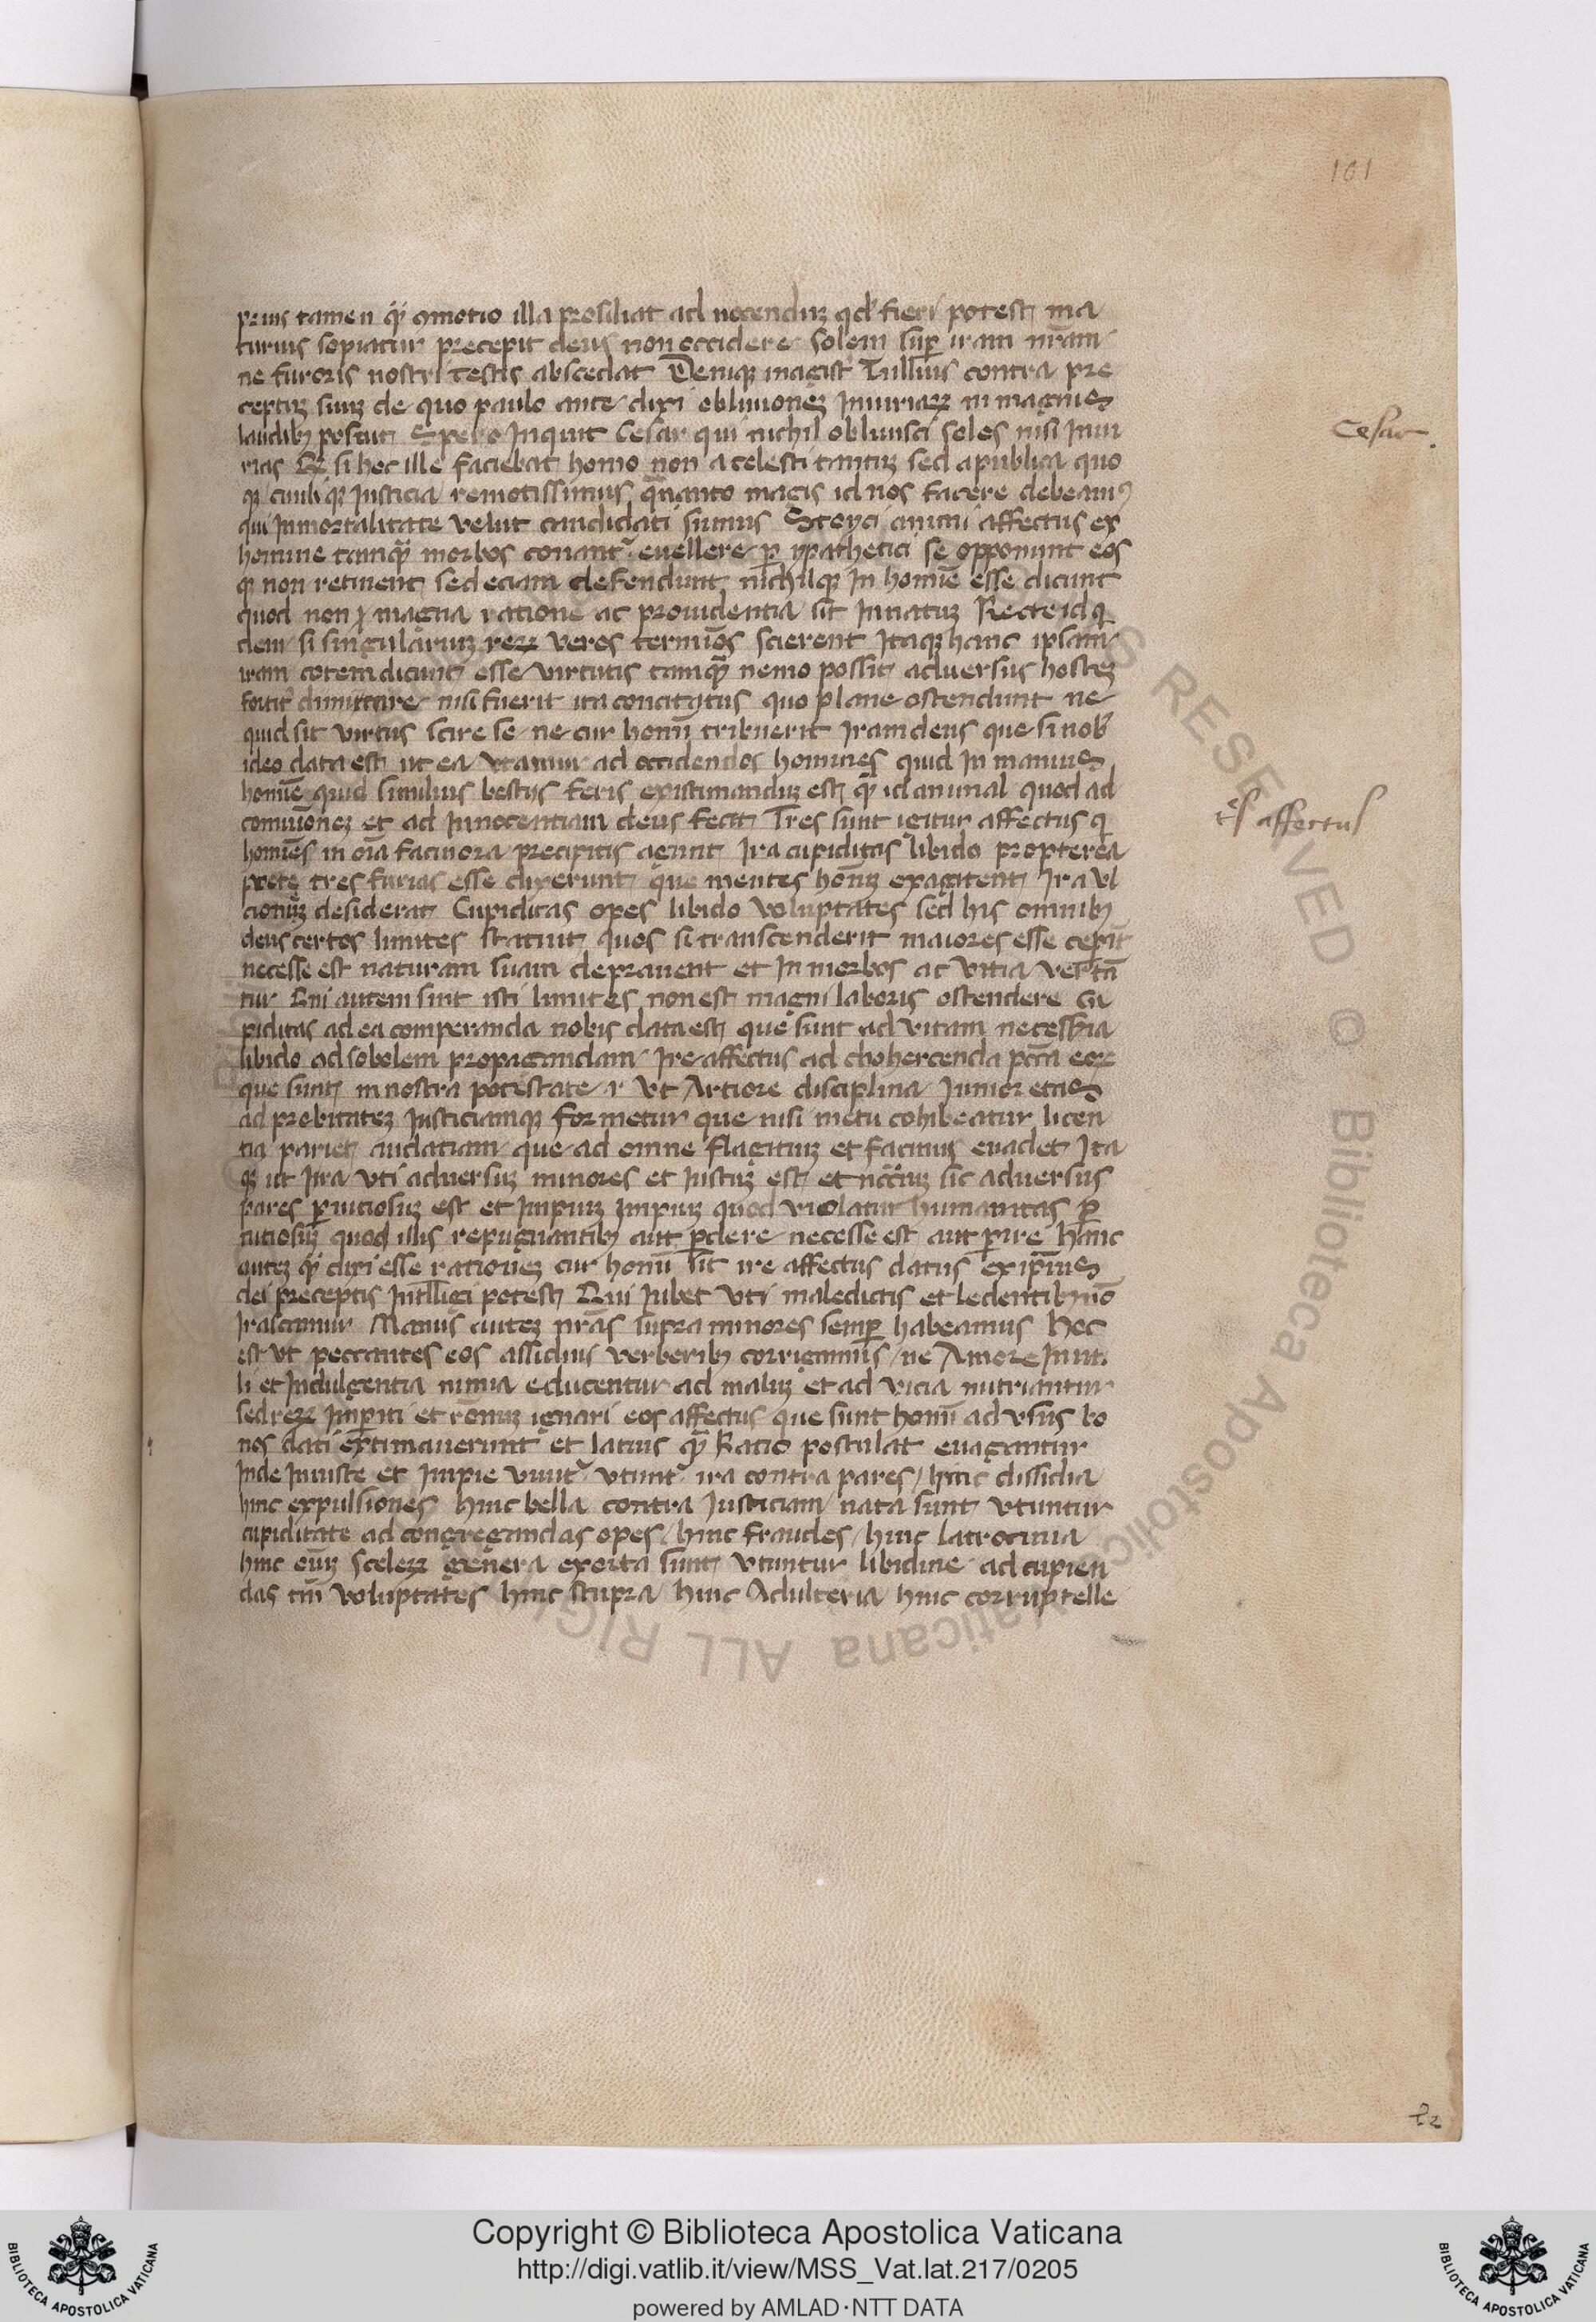 101
prius tamen qᷓ ꝯmotio illa prosiliat ad nocenduꝫ qd' fieri potest ma
turius sopiatur precepit deus non occidere solem suꝑ iram nr̄am
ne furoris nostri testis abscedat Deniqꝫ magist͛ Tullius contra pre
ceptuꝫ suuꝫ de quo paulo ante dixi obliuioneꝫ Iniuriaꝝ in magnis
laudibꝫ posuit Spero Inquit Cesar qui nichil obliuisci soles nisi Iniu
rias Qꝫ si hec ille faciebat homo non a celesti tantuꝫ sed a publica quo
qꝫ ciuili qꝫ Iusticia remotissimus quanto magis id nos facere debeamꝰ
qui Inmortalitate velut candidati sumus Stoyci animi affectus ex
homine tamqᷓ morbos conant᷑ euellere ꝑ ypathetici se opponunt eos
qꝫ non retinent sed eciam defendunt nichilqꝫ In homīe esse dicunt
quod non ꝓ magna ratione ac prouidentia sit Innatuꝫ Recte id q
dem si singulariuꝫ reꝝ veros termīos scirent Itaqꝫ hanc ipsam
iram cotem dicunt esse virtutis tamqᷓ nemo possit aduersus hosteꝫ
fortit͛ dimicare nisi fuerit ira concitatus quo plane ostendunt ne
quid sit virtus scire se ne cur homī tribuerit Iram deus que si nob'
ideo data est ut ea vtamur ad occidendos homines quid In manius
homīe quid similius bestijs feris existimanduꝫ est qᷓ id animal quod ad
comunioneꝫ et ad Innocentiam deus fecit Tres sunt igitur affectus q
homīes in oīa facinora precipitis agunt Ira cupiditas libido propterea
poete tres furias esse dixerunt que mentes homꝫ exagitent Ira vl
cionꝫ desiderat Cupiditas opes libido voluptates sed his omnibꝫ
deus certos limites statuit quos si transcenderit maiores esse ceperīt
necesse est naturam suam deprauent et In morbos ac vitia vertā
tur Qui autem sint isti limites non est magni laboris ostendere Cu
piditas ad ea comperanda nobis data est que sunt ad vitam necessāria
libido ad sobolem propagandam Ire affectus ad chohercenda pcc̄ā eoꝝ
que sunt in nostra potestate ɩ vt Artiore disciplina Iunior etas
ad probitateꝫ Iusticiamqꝫ formetur que nisi metu cohibeatur licen
tia pariet audatiam que ad omne flagituꝫ et facinus euadet Ita
qꝫ ut Ira vti aduersuꝫ minores et Iustuꝫ est et nc̄c̄riuꝫ sic aduersus
pares ꝑniciosuꝫ est et Impiuꝫ Impiuꝫ quod violatur humanitas ꝑ
niciosuꝫ quod illis repugnantibꝫ aut ꝑdere necesse est aut ꝑire hanc
auteꝫ qᷓ dixi esse rationeꝫ cur homī sit ire affectus datus ex ip̄ius
dei preceptis Intelligi potest Qui Iubet vti maledictis et ledentibꝫ nō
Irascamur Manus auteꝫ nrās supra minores semꝑ habeamus hoc
est vt peccantes eos assiduis verberibꝫ corrigamus ne Amore Inuti
li et Indulgentia nimia educentur ad maluꝫ et ad vicia nutriantur
sed reꝝ Imꝑiti et rōnuꝫ ignari eos affectus que sunt homī ad vsus bo
nos dati extimauerunt et latius qᷓ Ratio postulat euagantur
Inde Iniuste et Impie viuit᷑ vtunt᷑ ira contra pares hinc dissidia
hinc expulsiones hinc bella contra Iusticiam nata sunt vtuntur
cupiditate ad congregandas opes hinc fraudes hinc latrocinia
hinc eūꝫ sceleꝝ genera exorta sunt vtuntur libidine ad cupien
das tm̄ voluptates hinc stupra hinc Adulteria hinc corruptelle
Cesar
affectus
ALL RIGHTS RESERVED © Biblioteca Apostolica Vaticana
Copyright © Biblioteca Apostolica Vaticana
http://digi.vatlib.it/view/MSS_Vat.lat.217/0205
powered by AMLAD·NTT DATA
BIBLIOTECA APOSTOLICA VATICANA
BIBLIOTECA APOSTOLICA VATICANA